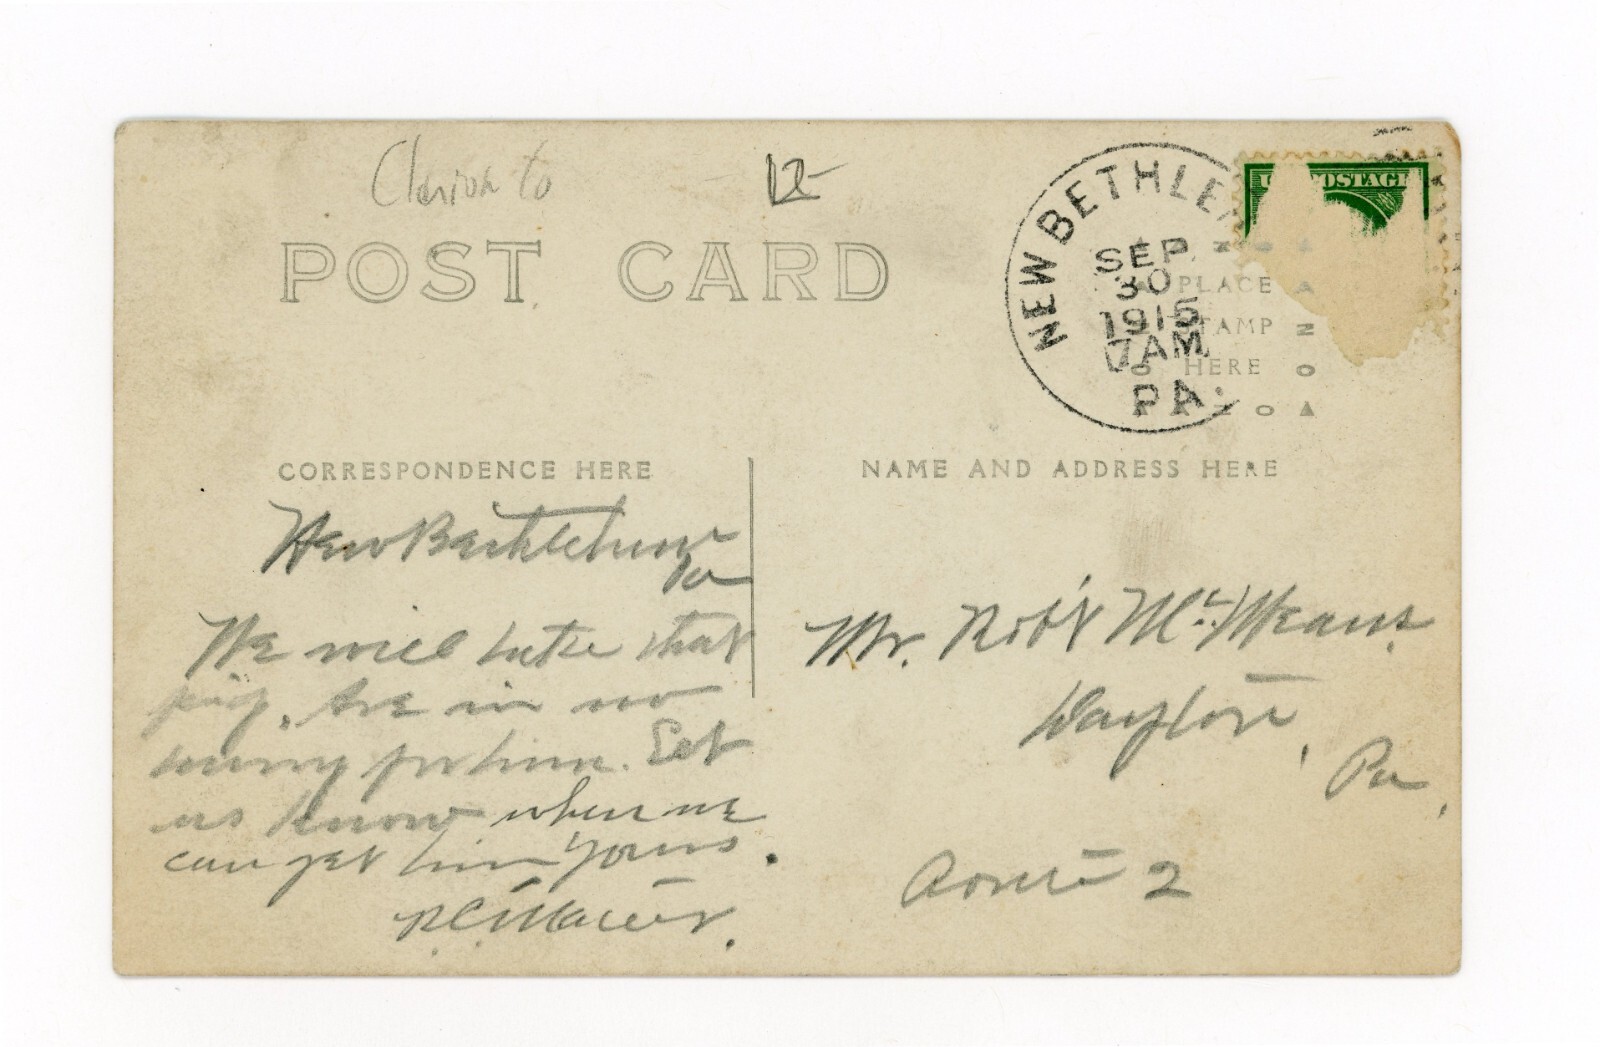 Clarion Co
12-
POST CARD
NEW BETHLE
SEP
30
1915
7AM
PA.
U. POSTAGE
PLACE
STAMP
HERE
CORRESPONDENCE HERE
NAME AND ADDRESS HERE
New Bethlehem
Pa
We will take that
pig. Are in no
hurry for him. Let
us know when we
can get him Yours.
R C
Mr. Rob't McMeans.
Dayton,
Pa,
Route 2